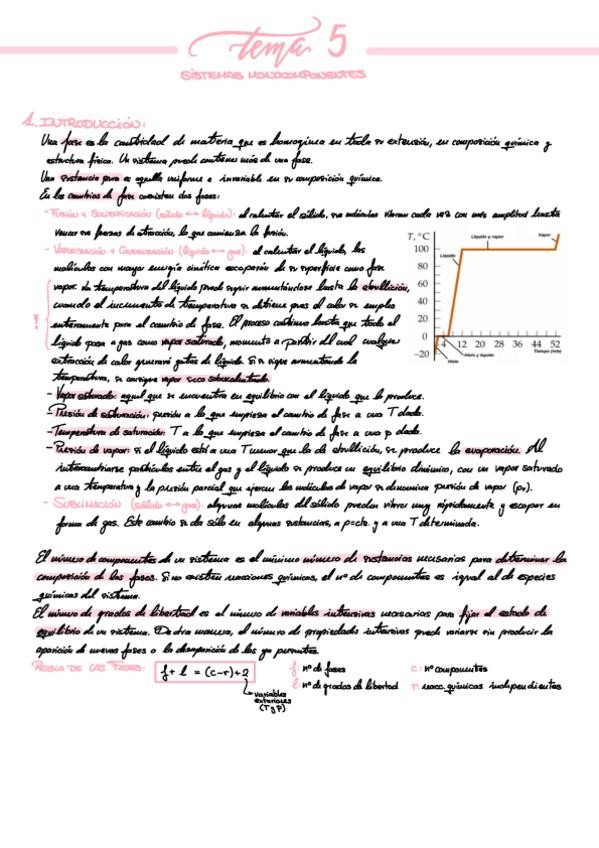 tema 5
SISTEMAS MONOCOMPONENTES
1. INTRODUCCIÓN:
Una fase es la cantidad de materia que es homogénea en toda su extensión, en composición química y
estructura física. Un sistema puede contener más de una fase.
Una sustancia pura es aquella uniforme e invariable en su composición química.
En los cambios de fase coexisten dos fases:
- FUSIÓN Y SOLIDIFICACIÓN (sólido ↔ líquido): al calentar el sólido, sus moléculas vibran cada vez con más amplitud hasta
vencer las fuerzas de atracción, lo que comienza la fusión.
- VAPORIZACIÓN Y CONDENSACIÓN (líquido ↔ gas): al calentar el líquido, las
moléculas con mayor energía cinética escaparán de su superficie como fase
vapor. La temperatura del líquido puede seguir aumentándose hasta la ebullición,
cuando el incremento de temperatura se detiene pues el calor se emplea
enteramente para el cambio de fase. El proceso continua hasta que todo el
líquido pasa a gas como vapor saturado, momento a partir del cual cualquier
extracción de calor generará gotas de líquido. Si se sigue aumentando la
temperatura, se consigue vapor seco sobrecalentado.
T, °C
100
80
60
40
20
0
-20
4 12 20 28 36 44 52
Tiempo (min)
Hielo
Hielo y líquido
Líquido
Líquido y vapor
Vapor
- Vapor saturado: aquel que se encuentra en equilibrio con el líquido que lo produce.
- Presión de saturación: presión a la que empieza el cambio de fase a una T dada.
- Temperatura de saturación: T a la que empieza el cambio de fase a una p dada.
- Presión de vapor: si el líquido está a una T menor que la de ebullición, se produce la evaporación. Al
intercambiarse partículas entre el gas y el líquido se produce un equilibrio dinámico, con un vapor saturado
a una temperatura y la presión parcial que ejercen las moléculas de vapor se denomina presión de vapor (pv).
- SUBLIMACIÓN (sólido ↔ gas): algunas moléculas del sólido pueden vibrar muy rápidamente y escapar en
forma de gas. Este cambio se da sólo en algunas sustancias, a p=cte. y a una T determinada.
El número de componentes de un sistema es el mínimo número de sustancias necesarias para determinar la
composición de las fases. Si no existen reacciones químicas, el nº de componentes es igual al de especies
químicas del sistema.
El número de grados de libertad es el número de variables intensivas necesarias para fijar el estado de
equilibrio de un sistema. De otra manera, el número de propiedades intensivas puede variarse sin producir la
aparición de nuevas fases o la desaparición de las ya presentes.
REGLA DE LAS FASES: f + l = (c-r)+2
variables exteriores (T y P)
f: nº de fases
c: nº componentes
l: nº de grados de libertad
r: reacc. químicas independientes